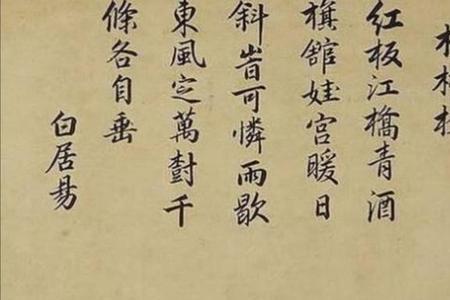 紅板江橋青酒
旗舘娃宮暖日
斜旹可憐雨歇
東風定萬樹千
條各自垂
白居易